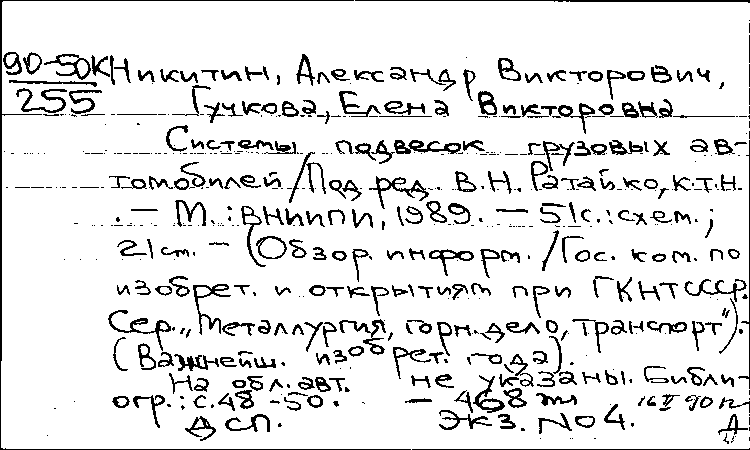 90-50К Никитин, Александр Викторович,
255 Гучкова, Елена Викторовна.
Системы подвесок грузовых ав-
томобилей / Под ред. В.Н. Ратайко, к.т.н.
. — М.: ВНИИПИ, 1989. — 51с.: схем.;
21 см. — (Обзор. информ. / Гос. ком. по
изобрет. и открытиям при ГКНТ СССР.
Сер. „Металлургия, горн. дело, транспорт").-
(Важнейш. изобрет. года).
На обл. авт. не указаны. Библи-
огр.: с.48-50. — 468 16 II 90
ДСП. Экз. No 4.